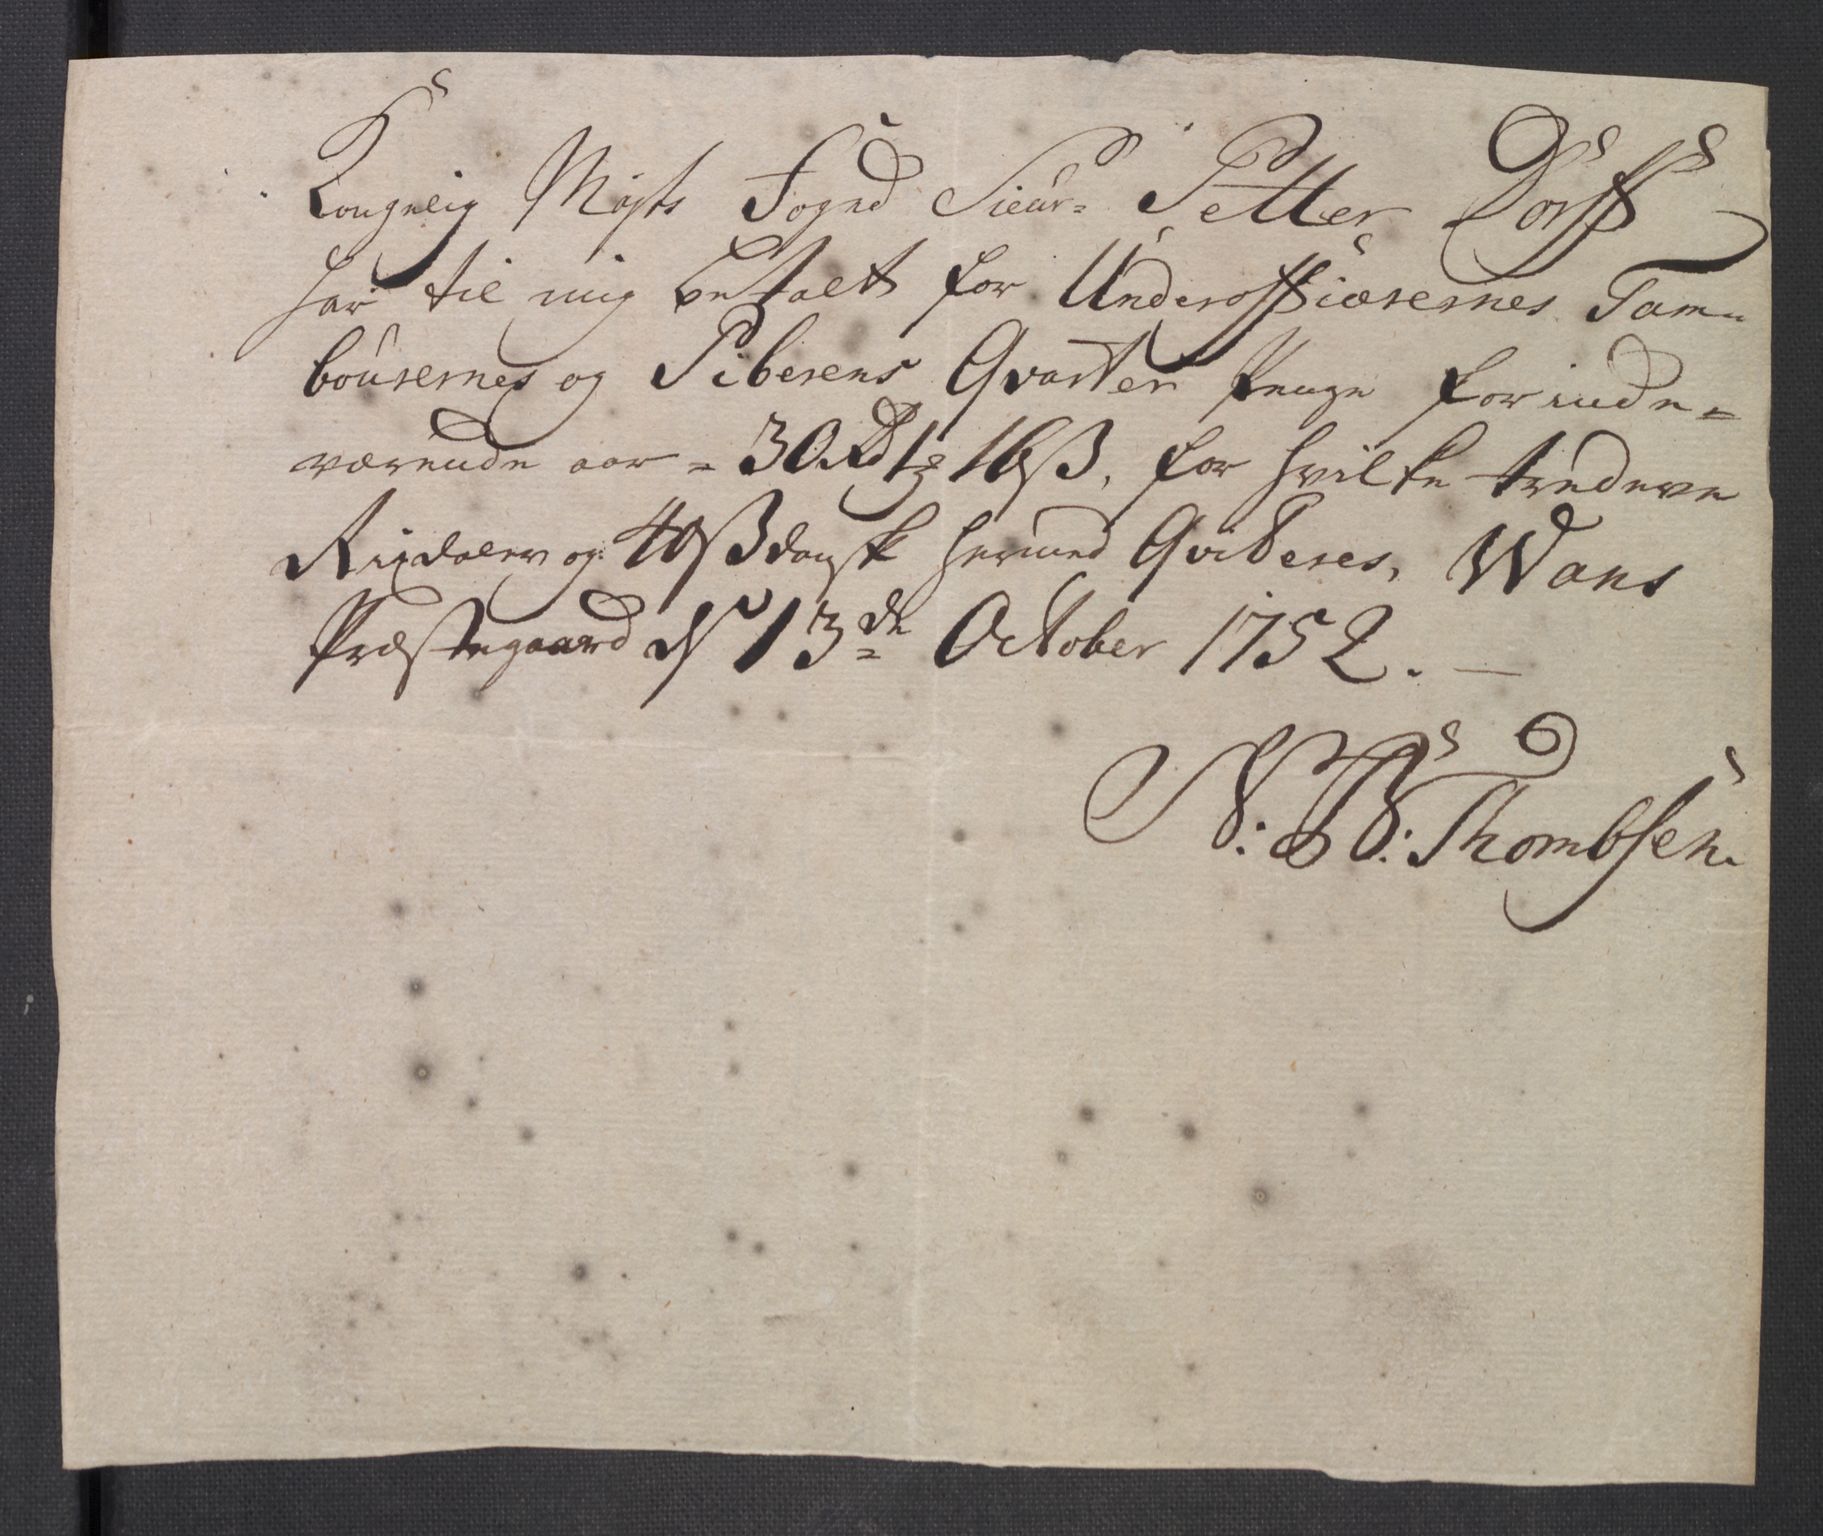 Kongelig Maÿts Foged Sieur= Petter Dorff
har til mig betalt for Underofficerernes Tam=
bourernes og Piberens Qvarteer penge for inde=
værende aar = 30 Rdlr 16 ß, for hvilke tredeve
Rixdaler og 16 ß dansk hermed Qviteres, Wans
Præstegaard dn 13de October 1752. —
N: W: Thombsen.